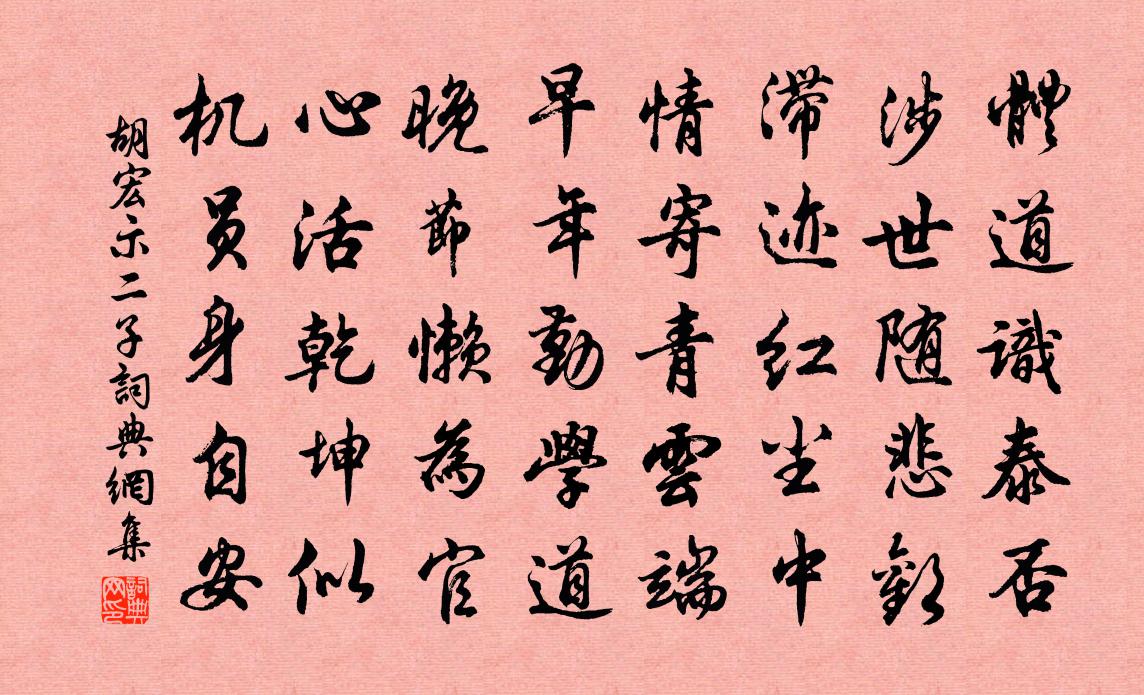 體道識泰否
涉世随悲歡
滯迹红尘中
情寄青雲端
早年勤學道
晚節懒為官
心活乾坤似
机員身自安
胡宏示二子詞典網集
詞典网印